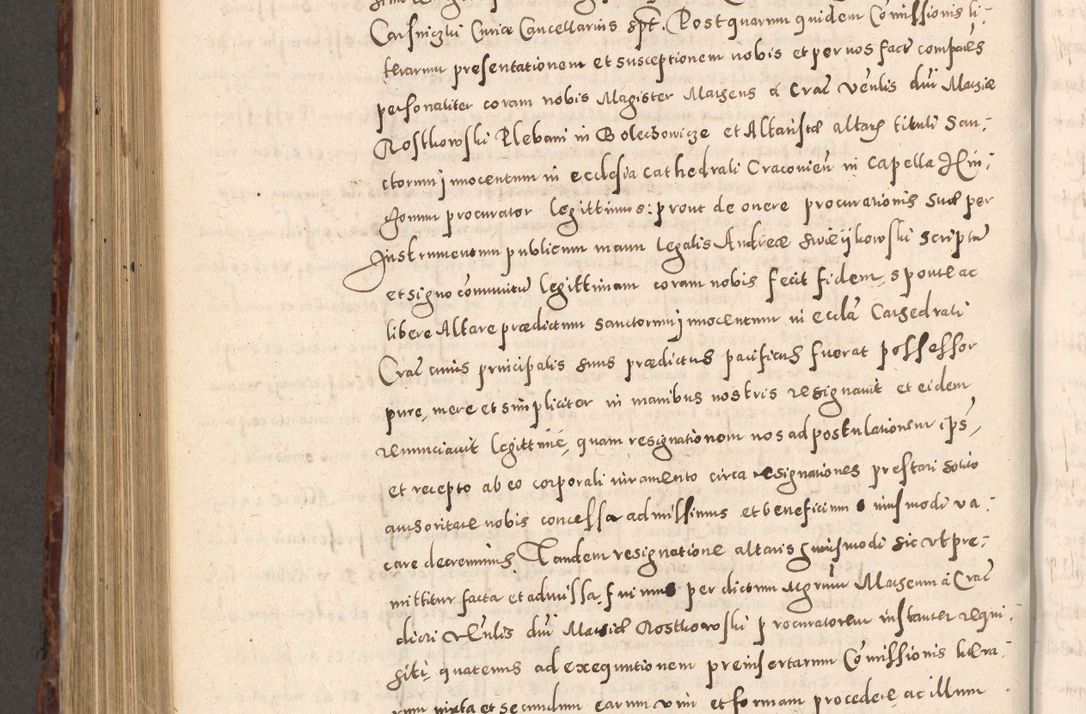 Carsniczki Curiæ Cancellarius spt. Post quarum quidem Comissionis li-
terarum presentationem et susceptionem nobis et per nos fact comparēs
personaliter coram nobis Magister Matheus à Crac Venlis dni Mathiæ
Rostkowski Plebani in Bolechowicze et Altaristæ altaris tituli San-
ctorum innocentum in ecclesia cathedrali Cracovien in capella
gonum procurator legittimus: prout de onere procurationis suæ per
Instrumentum publicum manu legalis Andreæ Swieykowski scriptū
et signo comunitū legittimam coram nobis fecit fidem, sponte ac
libere Altare prædictum Sanctorum innocentum in eccla Cathedrali
Crac cuius principalis suus prædictus pacificus fuerat possessor
pure, mere et simpliciter in manibus nostris resignavit et eidem
renunciavit legittime, quam resignationem nos ad postulationem ips,
et recepto ab eo corporali iuramento circa resignationes prestari solito
authoritate nobis concessa admissimus et beneficium huiusmodi va-
care decrevimus. Tandem resignatione altaris huiusmodi sic ut pre-
mittitur facta et admissa, fuimus per dictum Mgrum Matheum à Crac
dicti Venlis dni Mathiæ Rostkowski procuratorem instanter requi-
siti, quatenus ad exequutionem preinsertarum Comissionis littera-
rum iuxta et secundum earum vim et formam procedere, ac illum